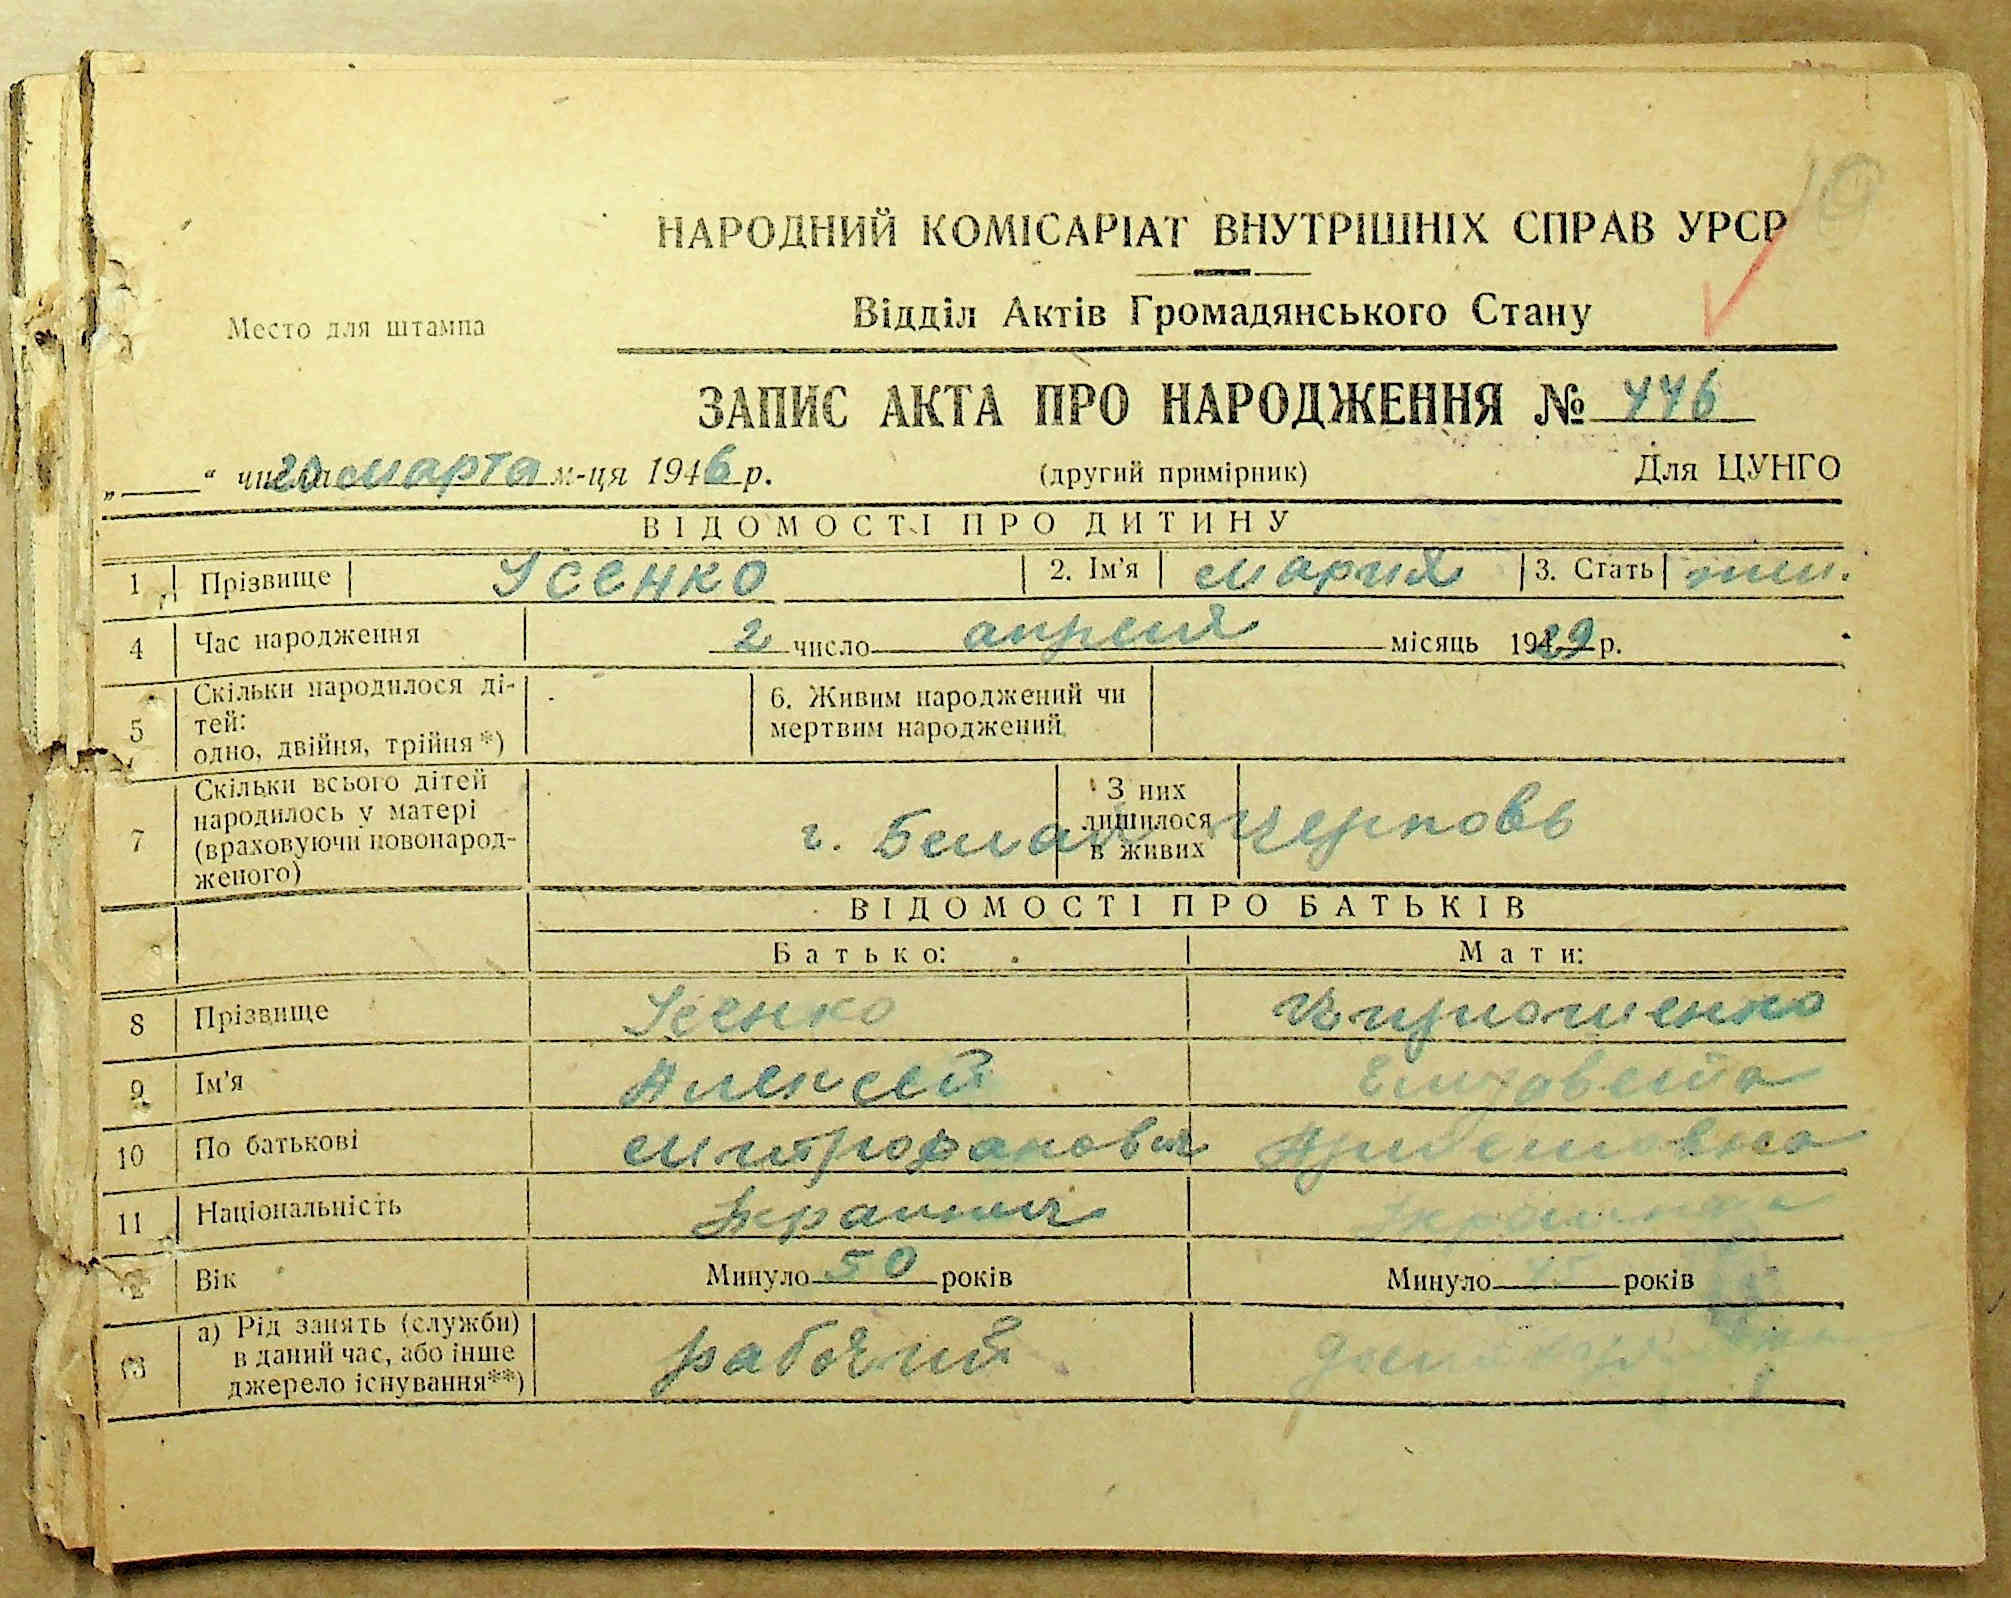 НАРОДНИЙ КОМІСАРІАТ ВНУТРІШНІХ СПРАВ УРСР
Место для штампа
Відділ Актів Громадянського Стану
ЗАПИС АКТА ПРО НАРОДЖЕННЯ № 446
„ “ числа 20 марта м-ця 1946 р. (другий примірник) Для ЦУНГО
ВІДОМОСТІ ПРО ДИТИНУ
1 Прізвище Усенко 2. Ім'я Мария 3. Стать жен.
4 Час народження 2 число апреля місяць 1929 р.
5 Скільки народилося ді-
тей:
одно, двійня, трійня*)
6. Живим народжений чи
мертвим народжений
7 Скільки всього дітей
народилось у матері
(враховуючи новонарод-
женого)
З них
лишилося
в живих
г. Белая Церковь
ВІДОМОСТІ ПРО БАТЬКІВ
Батько: Мати:
8 Прізвище Усенко
9 Ім'я Алексей Елизавета
10 По батькові Митрофанович
11 Національність Украинец Украинка
12 Вік Минуло 50 років Минуло 45 років
13 а) Рід занять (служби)
в даний час, або інше
джерело існування**)
рабочий